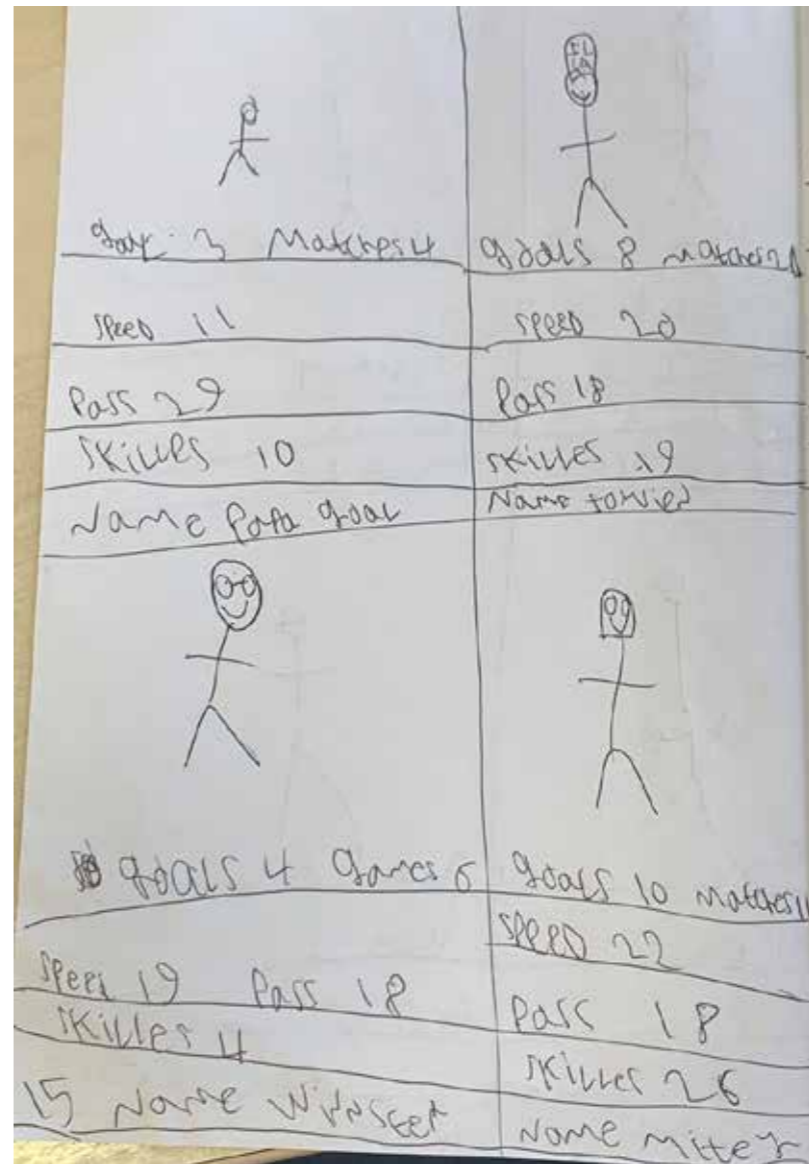 goals 3 Matches 4
speed 11
Pass 29
skilles 10
Name Papa goal
goals 8 matches 20
speed 20
Pass 18
skilles 19
Name
goals 4 Games 6
speed 19 Pass 18
skilles 4
15 Name
goals 10 matches 11
speed 22
Pass 18
skilles 26
Name mitter